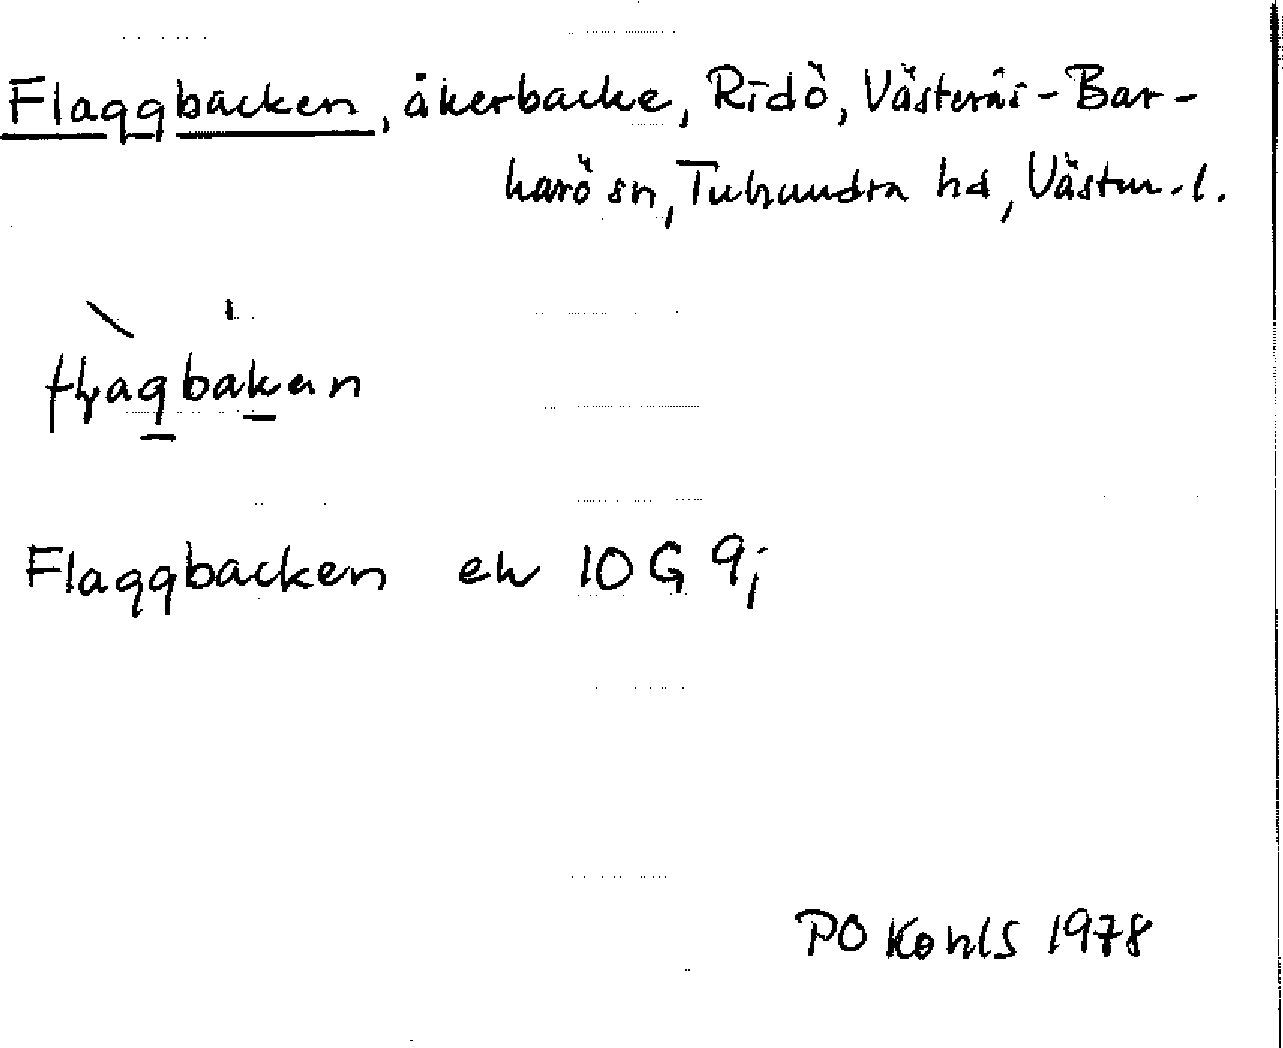 Flaggbacken, åkerbacke, Ridö, Västerås-Bar-
karö sn, Tuhundra hd, Västm. l.
flyagbakan
Flaggbacken ek 10G 9j
PO Kohls 1978